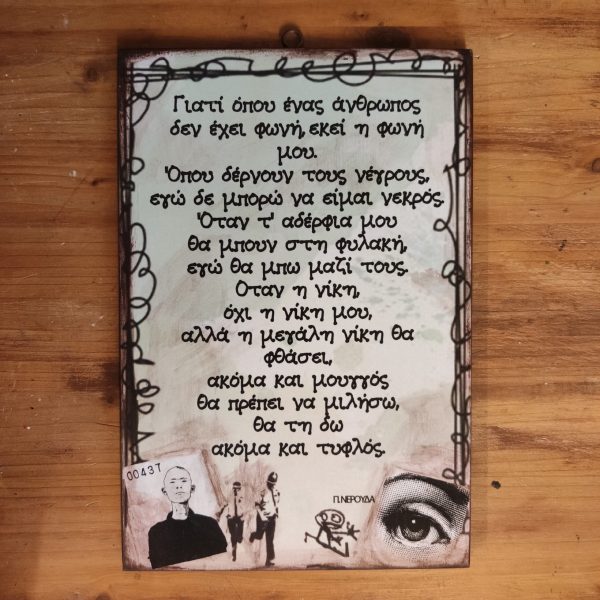 Γιατί όπου ένας άνθρωπος
δεν έχει φωνή, εκεί η φωνή
μου.
Όπου δέρνουν τους νέγρους,
εγώ δε μπορώ να είμαι νεκρός.
Όταν τ' αδέρφια μου
θα μπουν στη φυλακή,
εγώ θα μπω μαζί τους.
Όταν η νίκη,
όχι η νίκη μου,
αλλά η μεγάλη νίκη θα
φθάσει,
ακόμα και μουγγός
θα πρέπει να μιλήσω,
θα τη δω
ακόμα και τυφλός.
00437
Π.ΝΕΡΟΥΔΑ